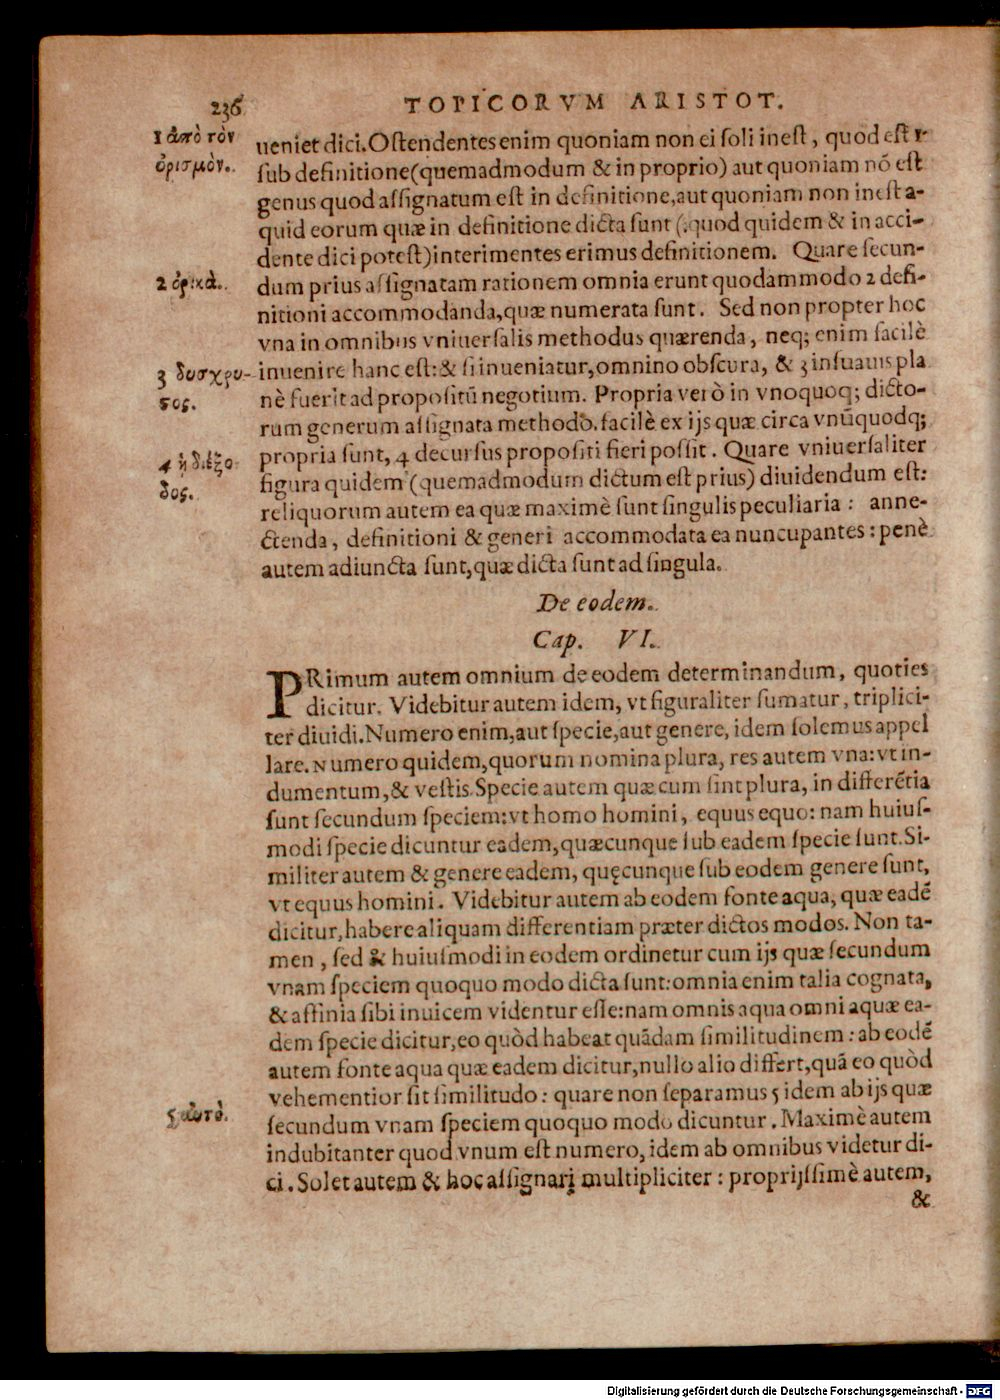 236
TOPICORVM ARISTOT.
1 ἀπὸ τὸν
ὁρισμὸν.
ueniet dici. Ostendentes enim quoniam non ei soli inest, quod est 1
sub definitione (quemadmodum & in proprio) aut quoniam nō est
genus quod assignatum est in definitione, aut quoniam non inest a-
quid eorum quæ in definitione dicta sunt (quod quidem & in acci-
dente dici potest) interimentes erimus definitionem. Quare secun-
2 ὁρικὰ.
dum prius assignatam rationem omnia erunt quodammodo 2 defi-
nitioni accommodanda, quæ numerata sunt. Sed non propter hoc
vna in omnibus vniuersalis methodus quærenda, neq; enim facilè
3 δυσχρη-
στος.
inuenire hanc est: & si inueniatur, omnino obscura, & 3 insuauis pla
nè fuerit ad propositū negotium. Propria verò in vnoquoq; dicto-
rum generum assignata methodo, facilè ex ijs quæ circa vnūquodq;
4 ἡ διέξο
δος.
propria sunt, 4 decursus propositi fieri possit. Quare vniuersaliter
figura quidem (quemadmodum dictum est prius) diuidendum est:
reliquorum autem ea quæ maximè sunt singulis peculiaria: anne-
ctenda, definitioni & generi accommodata ea nuncupantes: penè
autem adiuncta sunt, quæ dicta sunt ad singula.
De eodem.
Cap. VI.
PRimum autem omnium de eodem determinandum, quoties
dicitur. Videbitur autem idem, vt figuraliter sumatur, triplici-
ter diuidi. Numero enim, aut specie, aut genere, idem solemus appel
lare. Numero quidem, quorum nomina plura, res autem vna: vt in-
dumentum, & vestis. Specie autem quæ cum sint plura, in differētia
sunt secundum speciem: vt homo homini, equus equo: nam huius-
modi specie dicuntur eadem, quæcunque sub eadem specie sunt. Si-
militer autem & genere eadem, quęcunque sub eodem genere sunt,
vt equus homini. Videbitur autem ab eodem fonte aqua, quæ eadē
dicitur, habere aliquam differentiam præter dictos modos. Non ta-
men, sed & huiusmodi in eodem ordinetur cum ijs quæ secundum
vnam speciem quoquo modo dicta sunt: omnia enim talia cognata,
& affinia sibi inuicem videntur esse: nam omnis aqua omni aquæ ea-
dem specie dicitur, eo quòd habeat quādam similitudinem: ab eodē
autem fonte aqua quæ eadem dicitur, nullo alio differt, quā eo quòd
vehementior sit similitudo: quare non separamus 5 idem ab ijs quæ
5 αὐτὸ.
secundum vnam speciem quoquo modo dicuntur. Maximè autem
indubitanter quod vnum est numero, idem ab omnibus videtur di-
ci. Solet autem & hoc assignari multipliciter: proprijssimè autem,
&
Digitalisierung gefördert durch die Deutsche Forschungsgemeinschaft - DFG